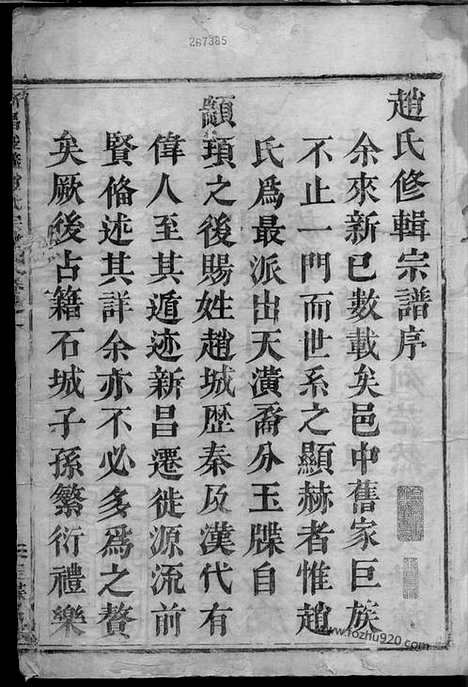 267385
趙氏修輯宗譜序
余來新已數載矣邑中舊家巨族
不止一門而世系之顯赫者惟趙
氏爲最派出天潢裔分玉牒自
顓頊之後賜姓趙城歷秦及漢代有
偉人至其遁迹新昌遷徙源流前
賢俻述其詳余亦不必多爲之贅
矣厥後占籍石城子孫繁衍禮樂
www.fozhu920.com